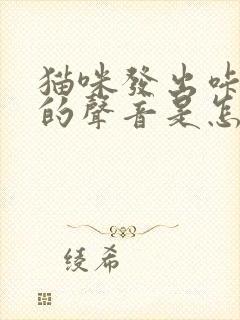 猫咪發出咔
的聲音是怎
綾希